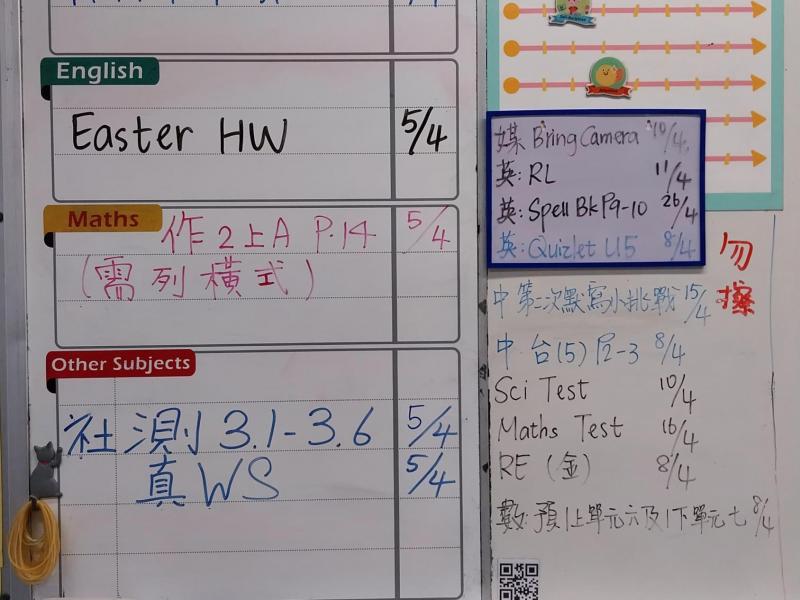 English
Easter HW 5/4
Maths
作2上A P.14 5/4
(需列橫式)
Other Subjects
社測 3.1-3.6 5/4
真WS 5/4
媒 Bring Camera 10/4
英: RL 11/4
英: Spell Bk P9-10 26/4
英: Quizlet U5 8/4
勿擦
中 第二次默寫小挑戰 15/4
中 台(5) P.2-3 8/4
Sci Test 10/4
Maths Test 16/4
RE (金) 8/4
數: 預1上單元六及1下單元七 8/4